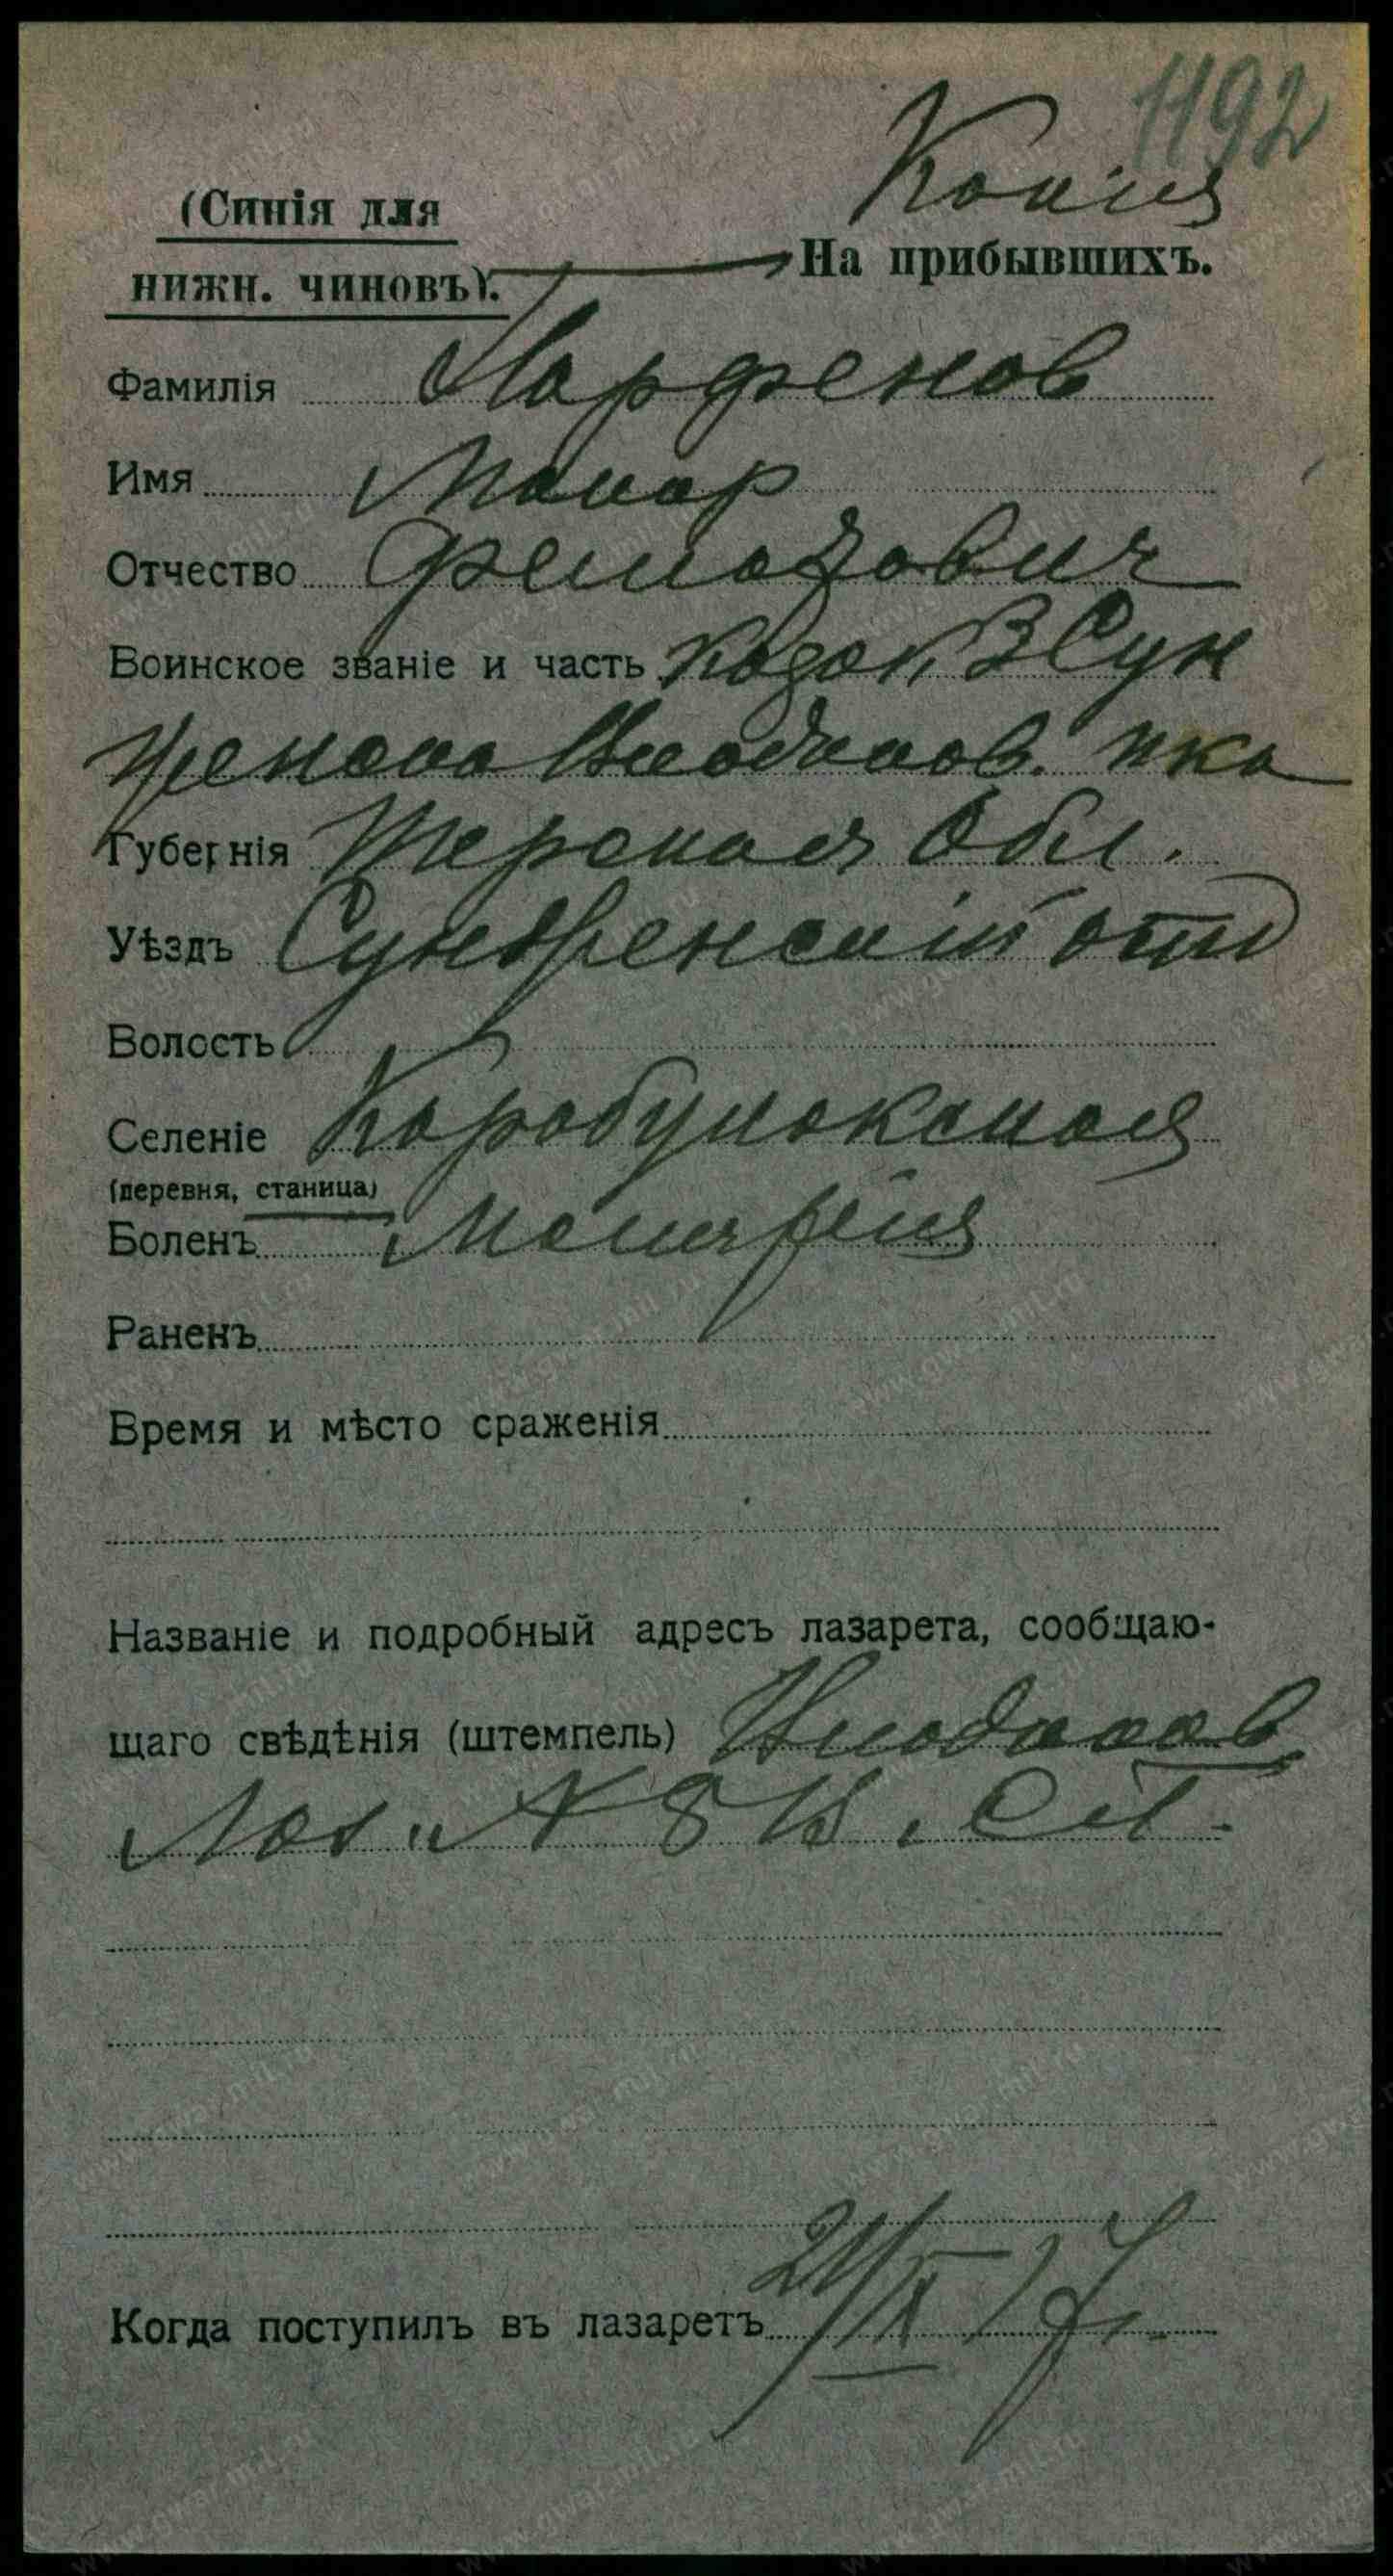 1192
Копия
(Синія для
нижн. чиновъ).
На прибывшихъ.
Фамилія Парфенов
Имя Макар
Отчество
Воинское званіе и часть Козак 3 Сун
женско Владикав. пка
Губернія Терская Обл.
Уѣздъ Сунженский отд
Волость
Селеніе Карабулакская
(деревня, станица)
Боленъ Малярия
Раненъ
Время и мѣсто сраженія
Названіе и подробный адресъ лазарета, сообщаю-
щаго свѣдѣнія (штемпель) Владикав
Лаз. № 8
Когда поступилъ въ лазаретъ 17